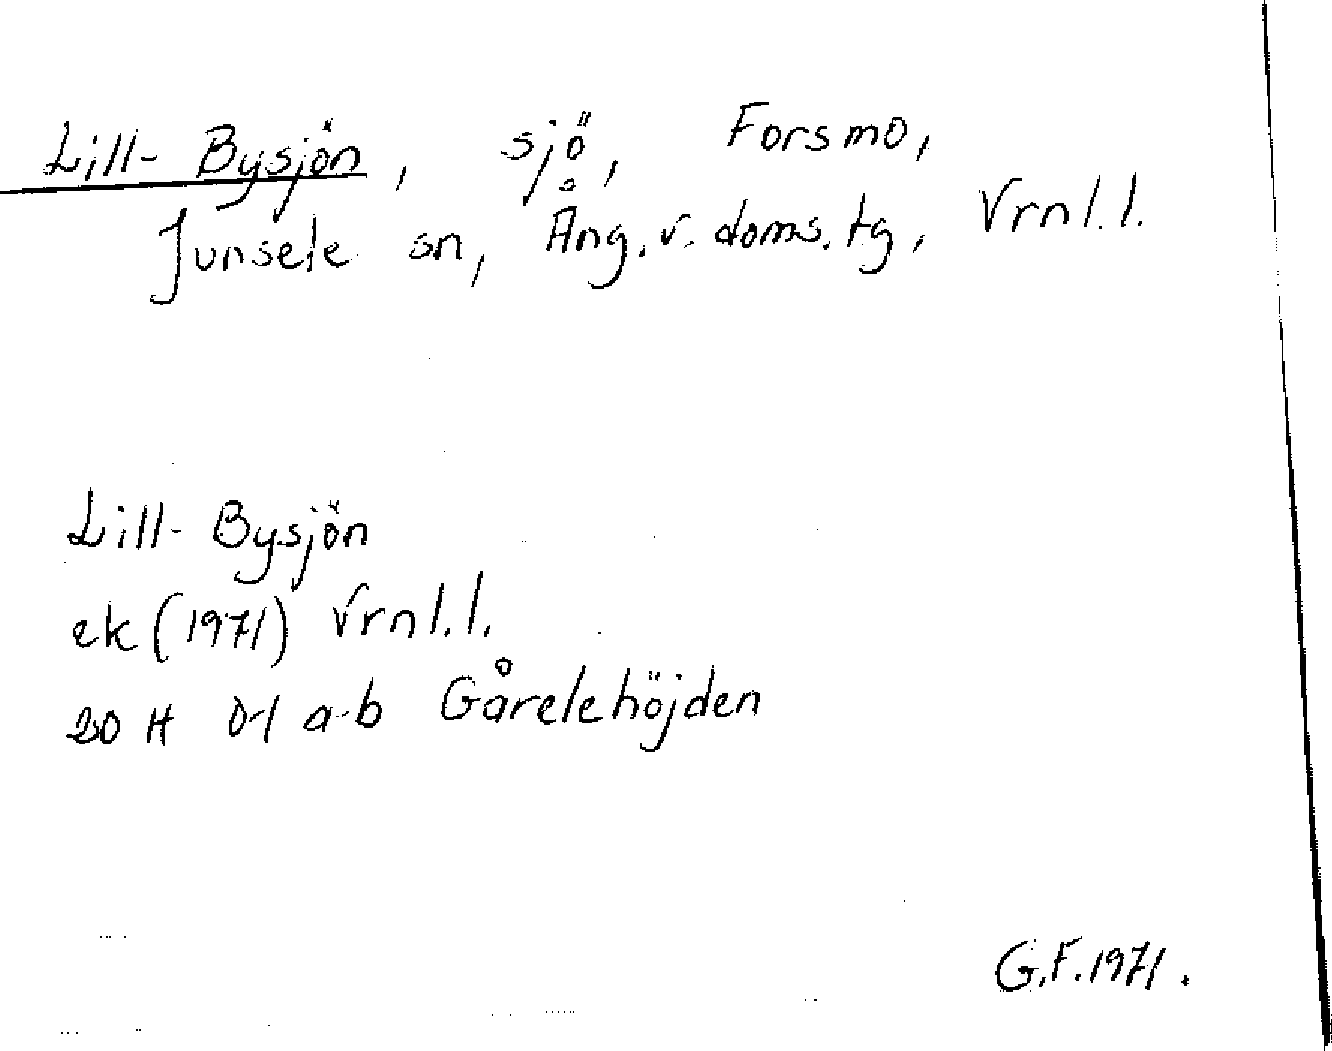 Lill-Bysjön, sjö, Forsmo,
Junsele sn, Ång.v.doms.tg, Vrnl.l.
Lill-Bysjön
ek (1971) Vrnl.l.
20 H 0-1 a-b Gårelehöjden
G.F.1971.